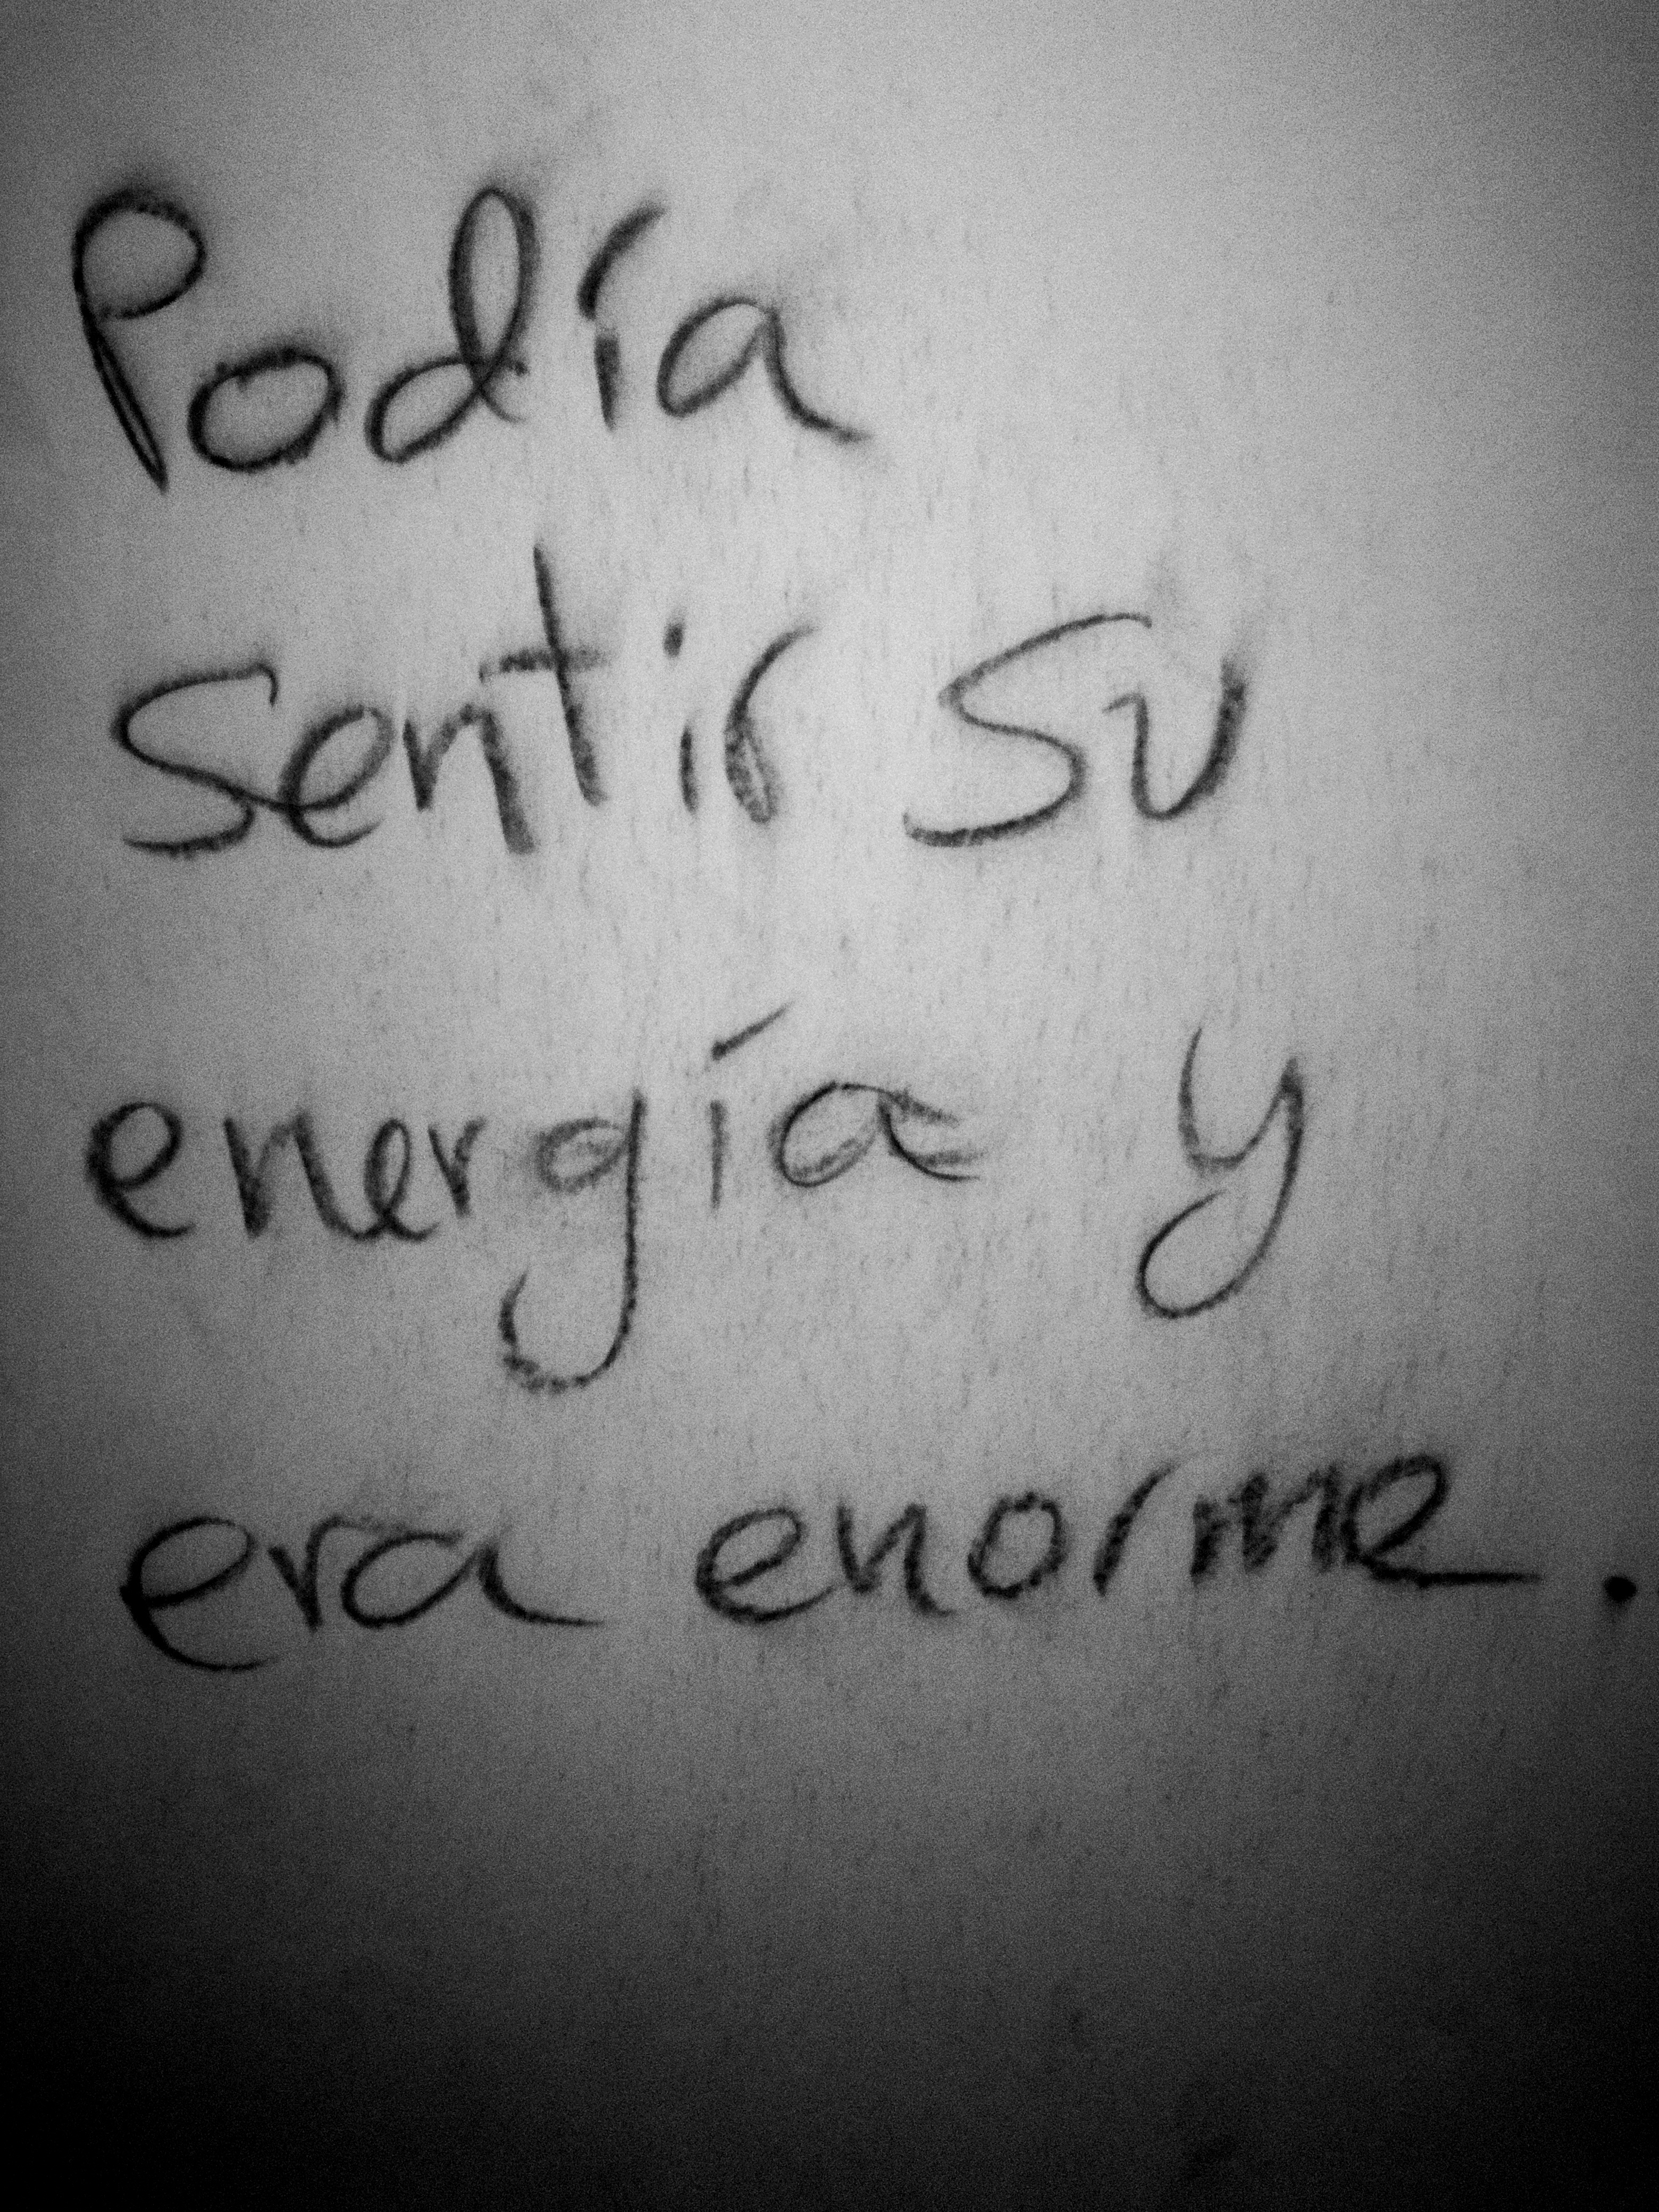 Podía
sentir su
energía y
era enorme.